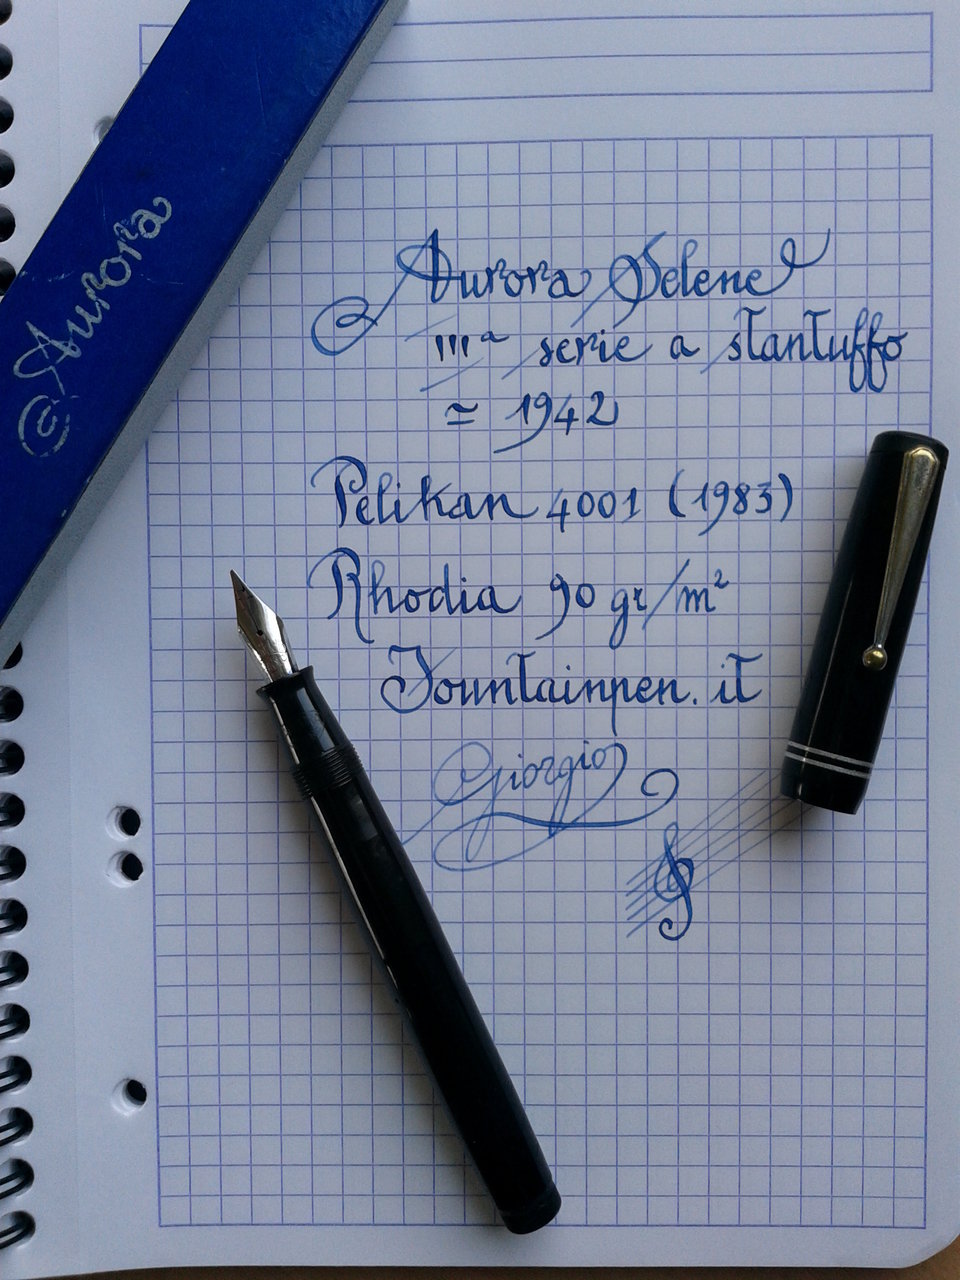 Aurora
Aurora Selene
IIIª serie a stantuffo
≃ 1942
Pelikan 4001 (1983)
Rhodia 90 gr/m²
Fountainpen.it
Giorgio